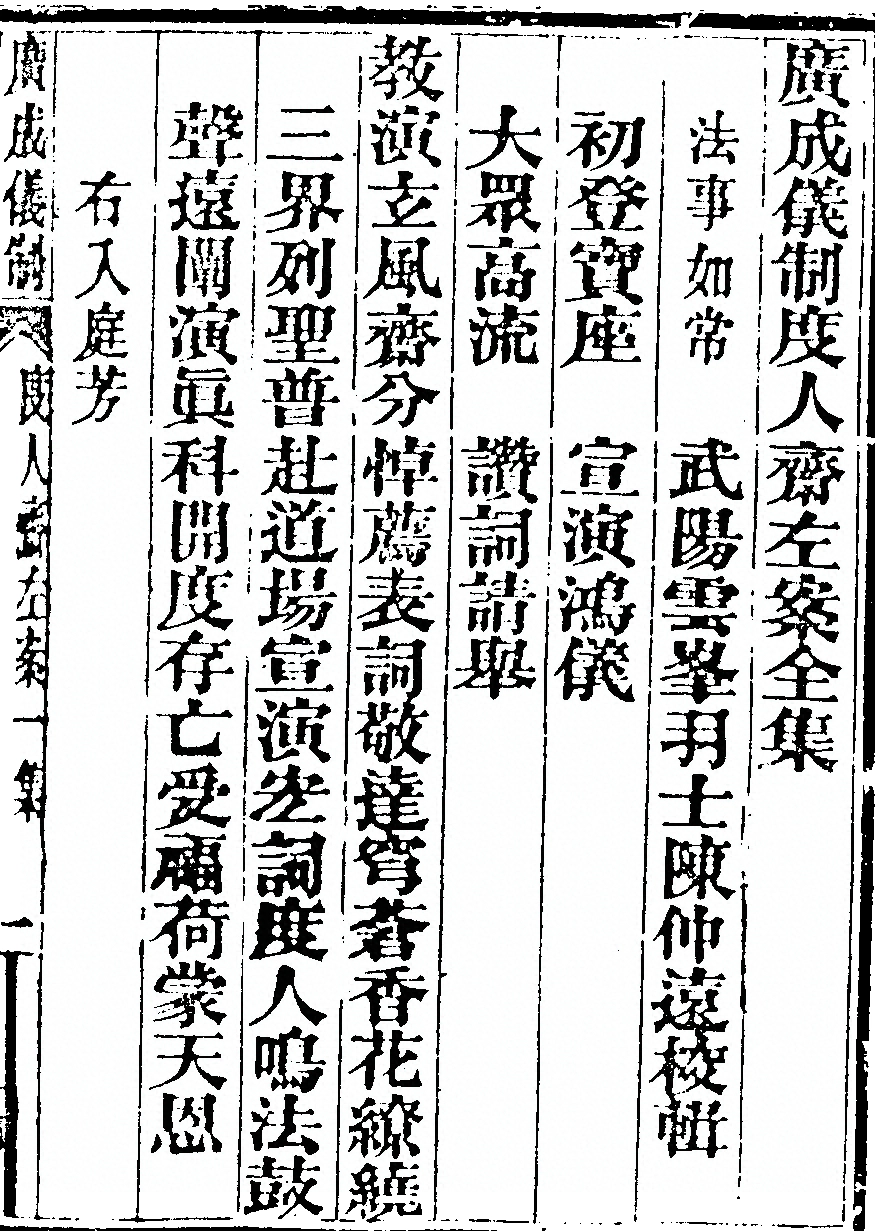 廣成儀制度人齋左案全集
法事如常　武陽雲峯羽士陳仲遠校輯
初登寶座　宣演鴻儀
大眾高流　讚詞請舉
教演玄風齋分悼薦表詞敬達穹蒼香花繚繞
三界列聖普赴道場宣演悲詞度人鳴法鼓
聲遠闡演眞科開度存亡受福荷蒙天恩
右入庭芳
廣成儀制　度人齋左案一集　一